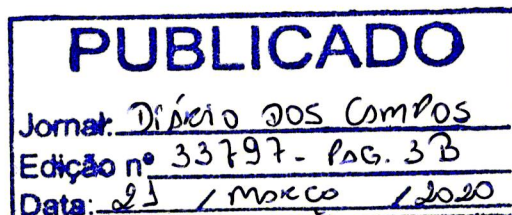 PUBLICADO
Jornal: DIÁRIO DOS CAMPOS
Edição nº 33797 - PAG. 3B
Data: 21 / MARÇO / 2020